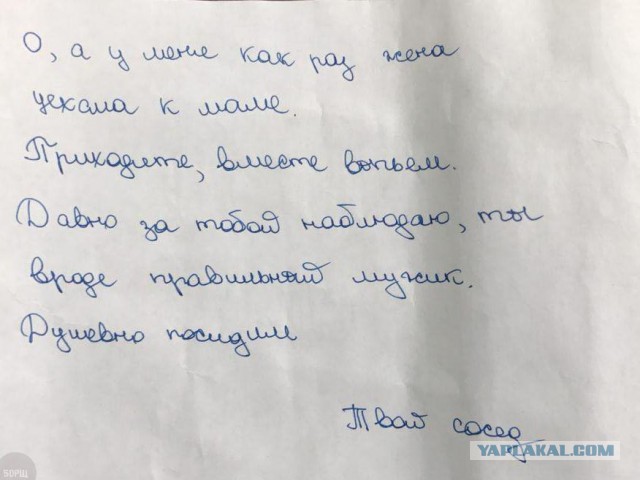 О, а у мене как раз жена
уехала к маме.
Приходите, вместе выпьем.
Давно за тобой наблюдаю, ты
вроде правильный мужик.
Душевно посидим
Твой сосед
YAPLAKAL.COM
БОРЩ